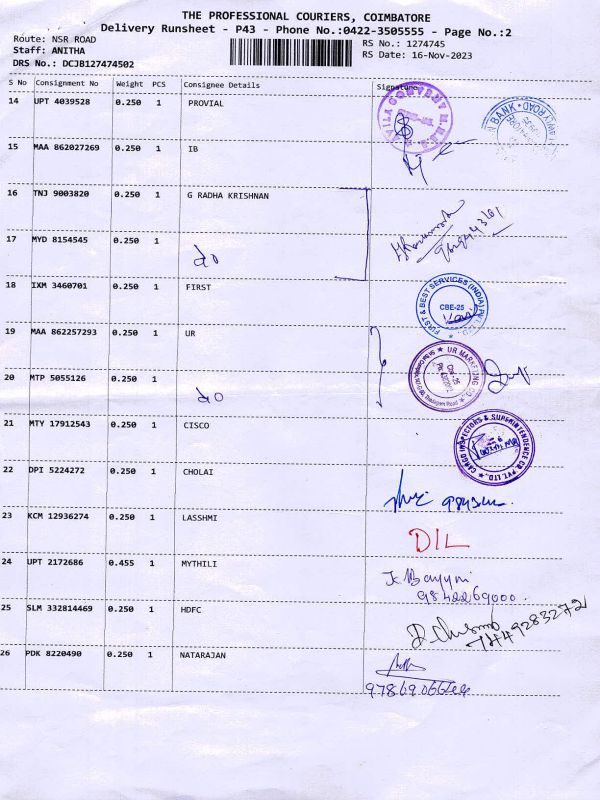 THE PROFESSIONAL COURIERS, COIMBATORE
Delivery Runsheet - P43 - Phone No.:0422-3505555 - Page No.:2
Route: NSR ROAD
Staff: ANITHA
DRS No.: DCJB127474502
RS No.: 1274745
RS Date: 16-Nov-2023
S No Consignment No Weight PCS Consignee Details Signature
14 UPT 4039528 0.250 1 PROVIAL
15 MAA 862027269 0.250 1 IB
16 TNJ 9003820 0.250 1 G RADHA KRISHNAN
17 MYD 8154545 0.250 1 do
18 IXM 3460701 0.250 1 FIRST
FIRST & BEST SERVICES (INDIA) PVT. LTD
CBE-25
19 MAA 862257293 0.250 1 UR
UR MARKETING CO.
20 MTP 5055126 0.250 1 do
21 MTY 17912543 0.250 1 CISCO
CARGO INSPECTORS & SUPERINTENDENCE CO. PVT. LTD.
22 DPI 5224272 0.250 1 CHOLAI
23 KCM 12936274 0.250 1 LASSHMI DIL
24 UPT 2172686 0.455 1 MYTHILI
9842269000.
25 SLM 332814469 0.250 1 HDFC
26 PDK 8220490 0.250 1 NATARAJAN